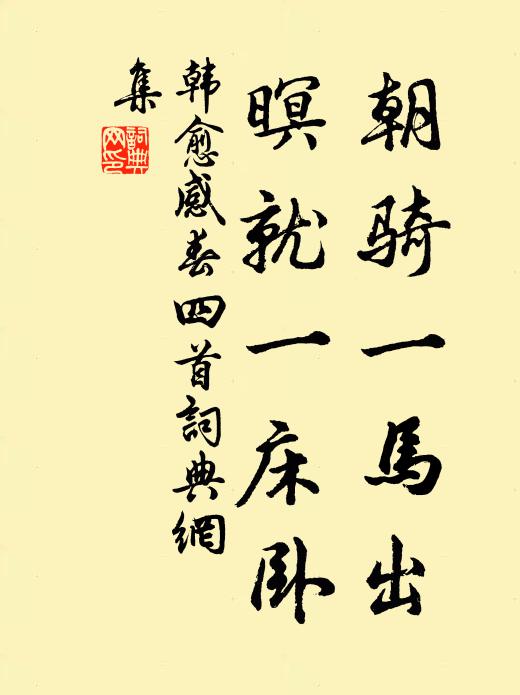 朝骑一馬出
暝就一床卧
韩愈感春四首詞典網
集
詞典
网印